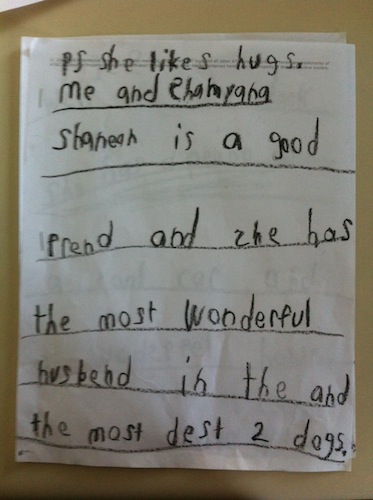 ps she likes hugs.
me and
shaneah is a good
frend and zhe has
the most wonderful
husbend in the and
the most dest 2 dogs.